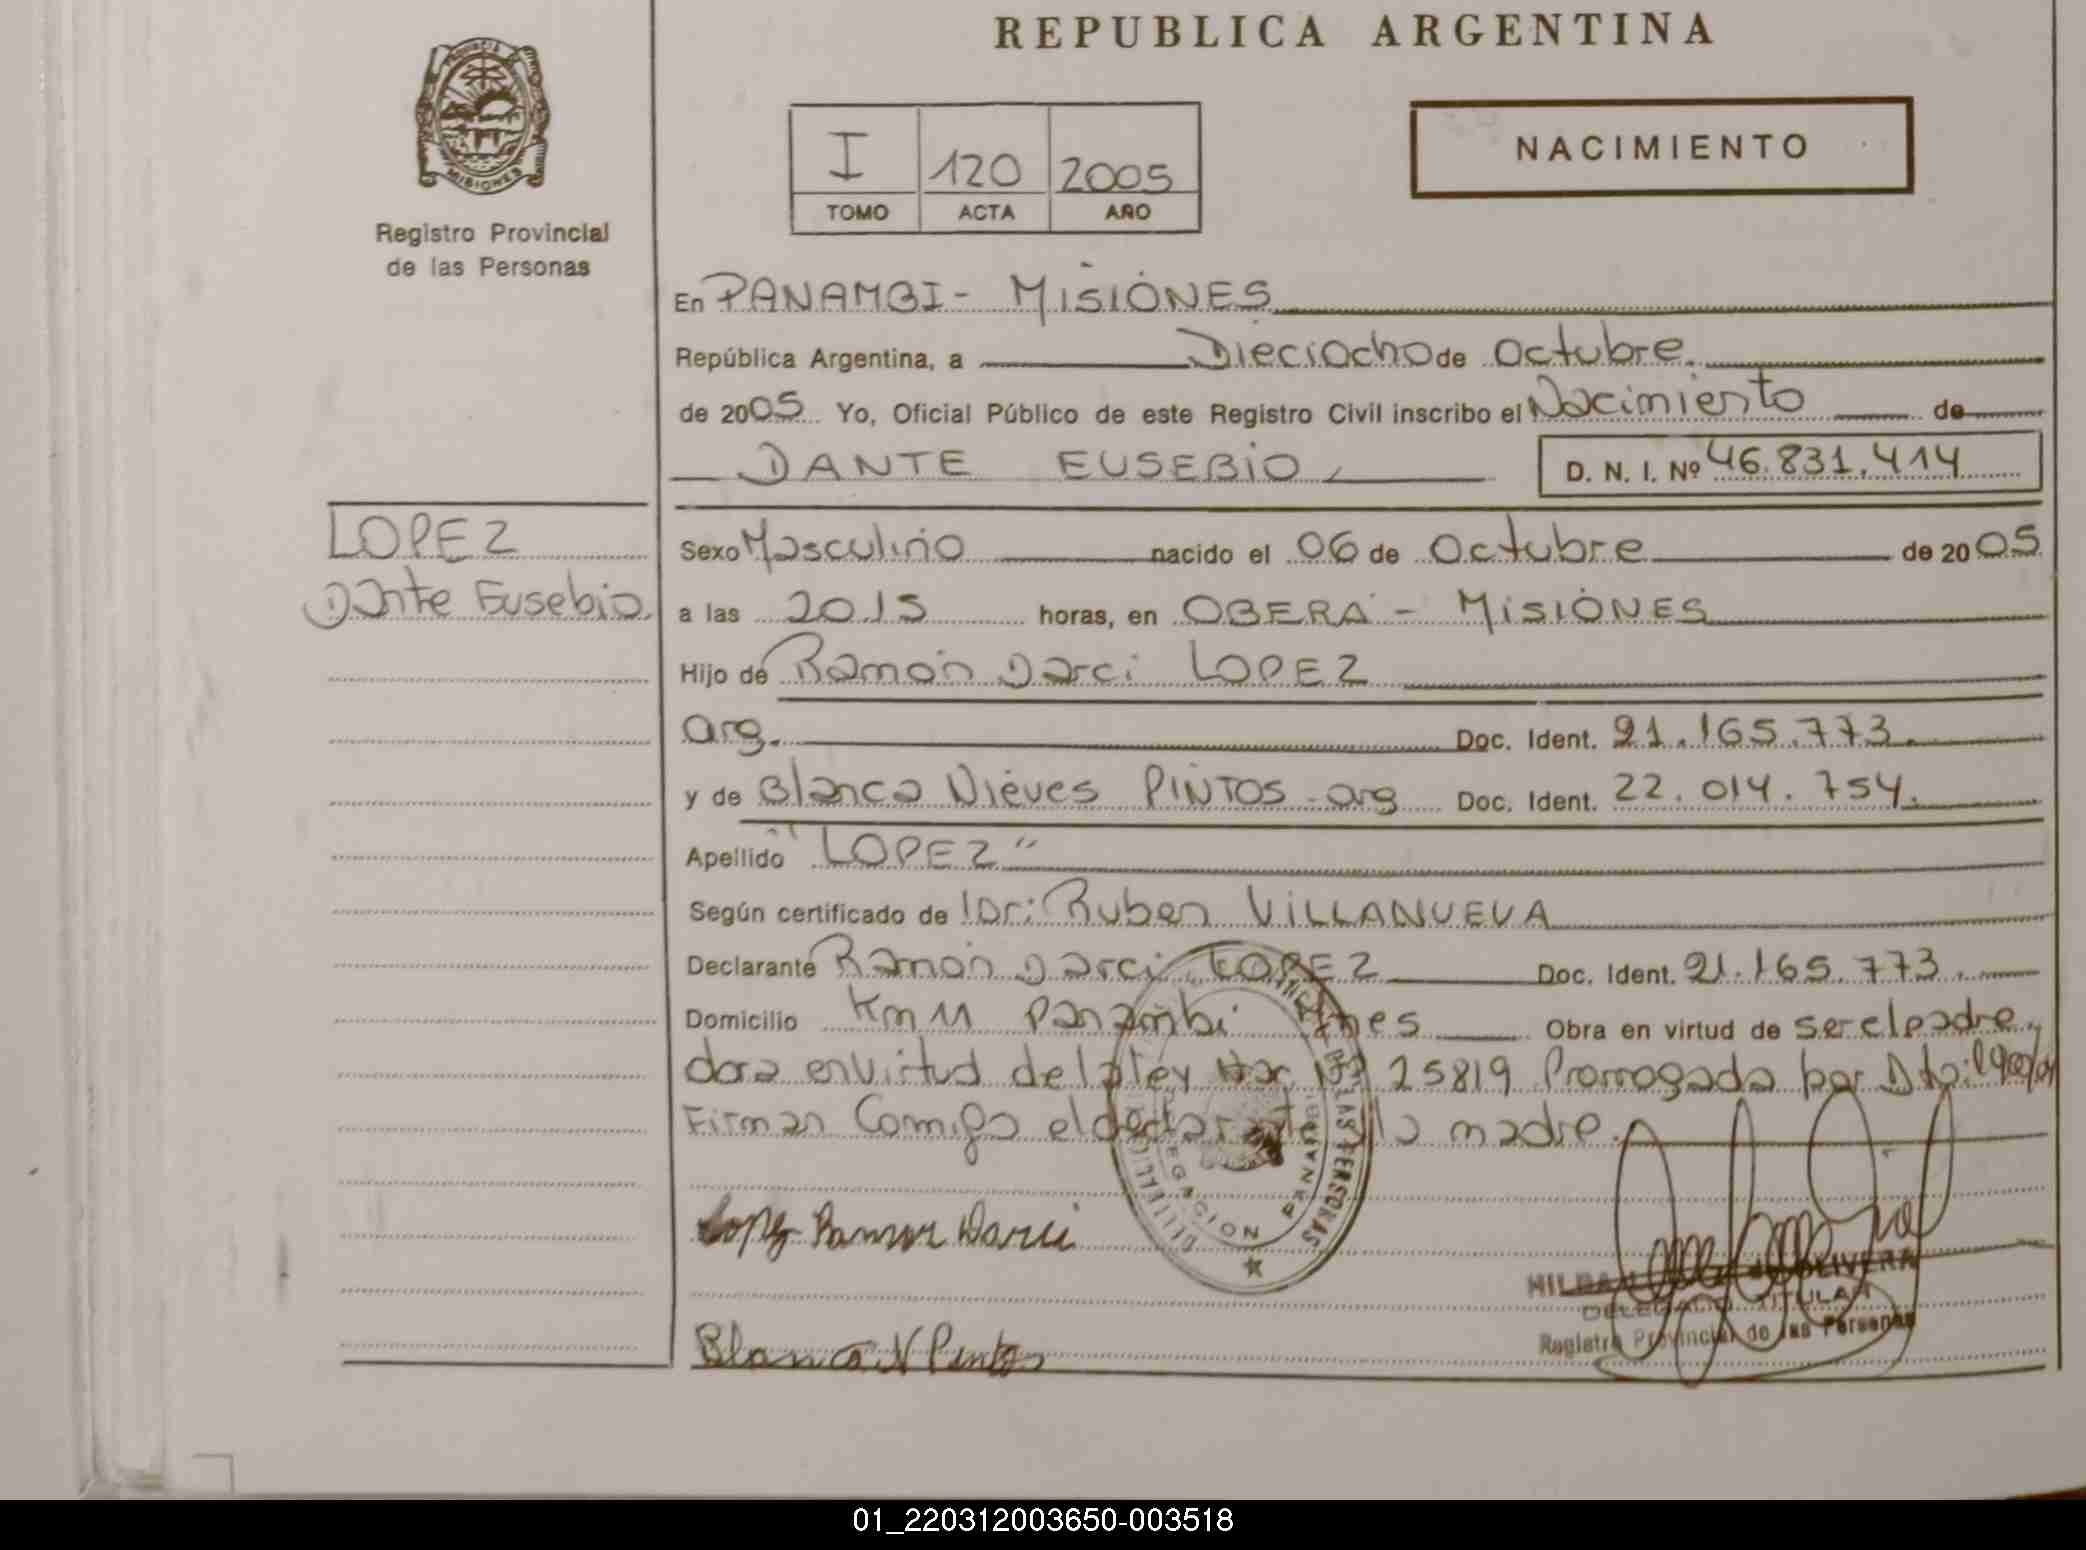 REPUBLICA ARGENTINA
PROVINCIA
MISIONES
Registro Provincial
de las Personas
I 120 2005
TOMO ACTA AÑO
NACIMIENTO
En PANAMBI - MISIONES
República Argentina, a Dieciocho de Octubre.
de 2005 Yo, Oficial Público de este Registro Civil inscribo el Nacimiento de
DANTE EUSEBIO D. N. I. Nº 46.831.414
LOPEZ
Dante Eusebio
Sexo Masculino nacido el 06 de Octubre de 2005
a las 20.15 horas, en OBERA - MISIONES
Hijo de Ramón Darci LOPEZ
arg. Doc. Ident. 21.165.773.
y de Blanca Nieves PINTOS - arg Doc. Ident. 22.014.754.
Apellido "LOPEZ"
Según certificado de Dr: Ruben VILLANUEVA
Declarante Ramón Darci LOPEZ Doc. Ident. 21.165.773.
Domicilio Km 11 Panambi Mnes Obra en virtud de ser el padre.
dora en virtud de la ley 25819 Prorrogada por Dto:
Firman Conmigo el declarante y la madre.
DE LAS PERSONAS
DELEGACION PANAMBI
Lopez Ramon Darci
OLIVERA
DELEGADO TITULAR
Registro Provincial de las Personas
Blanca N Pintos
01_220312003650-003518